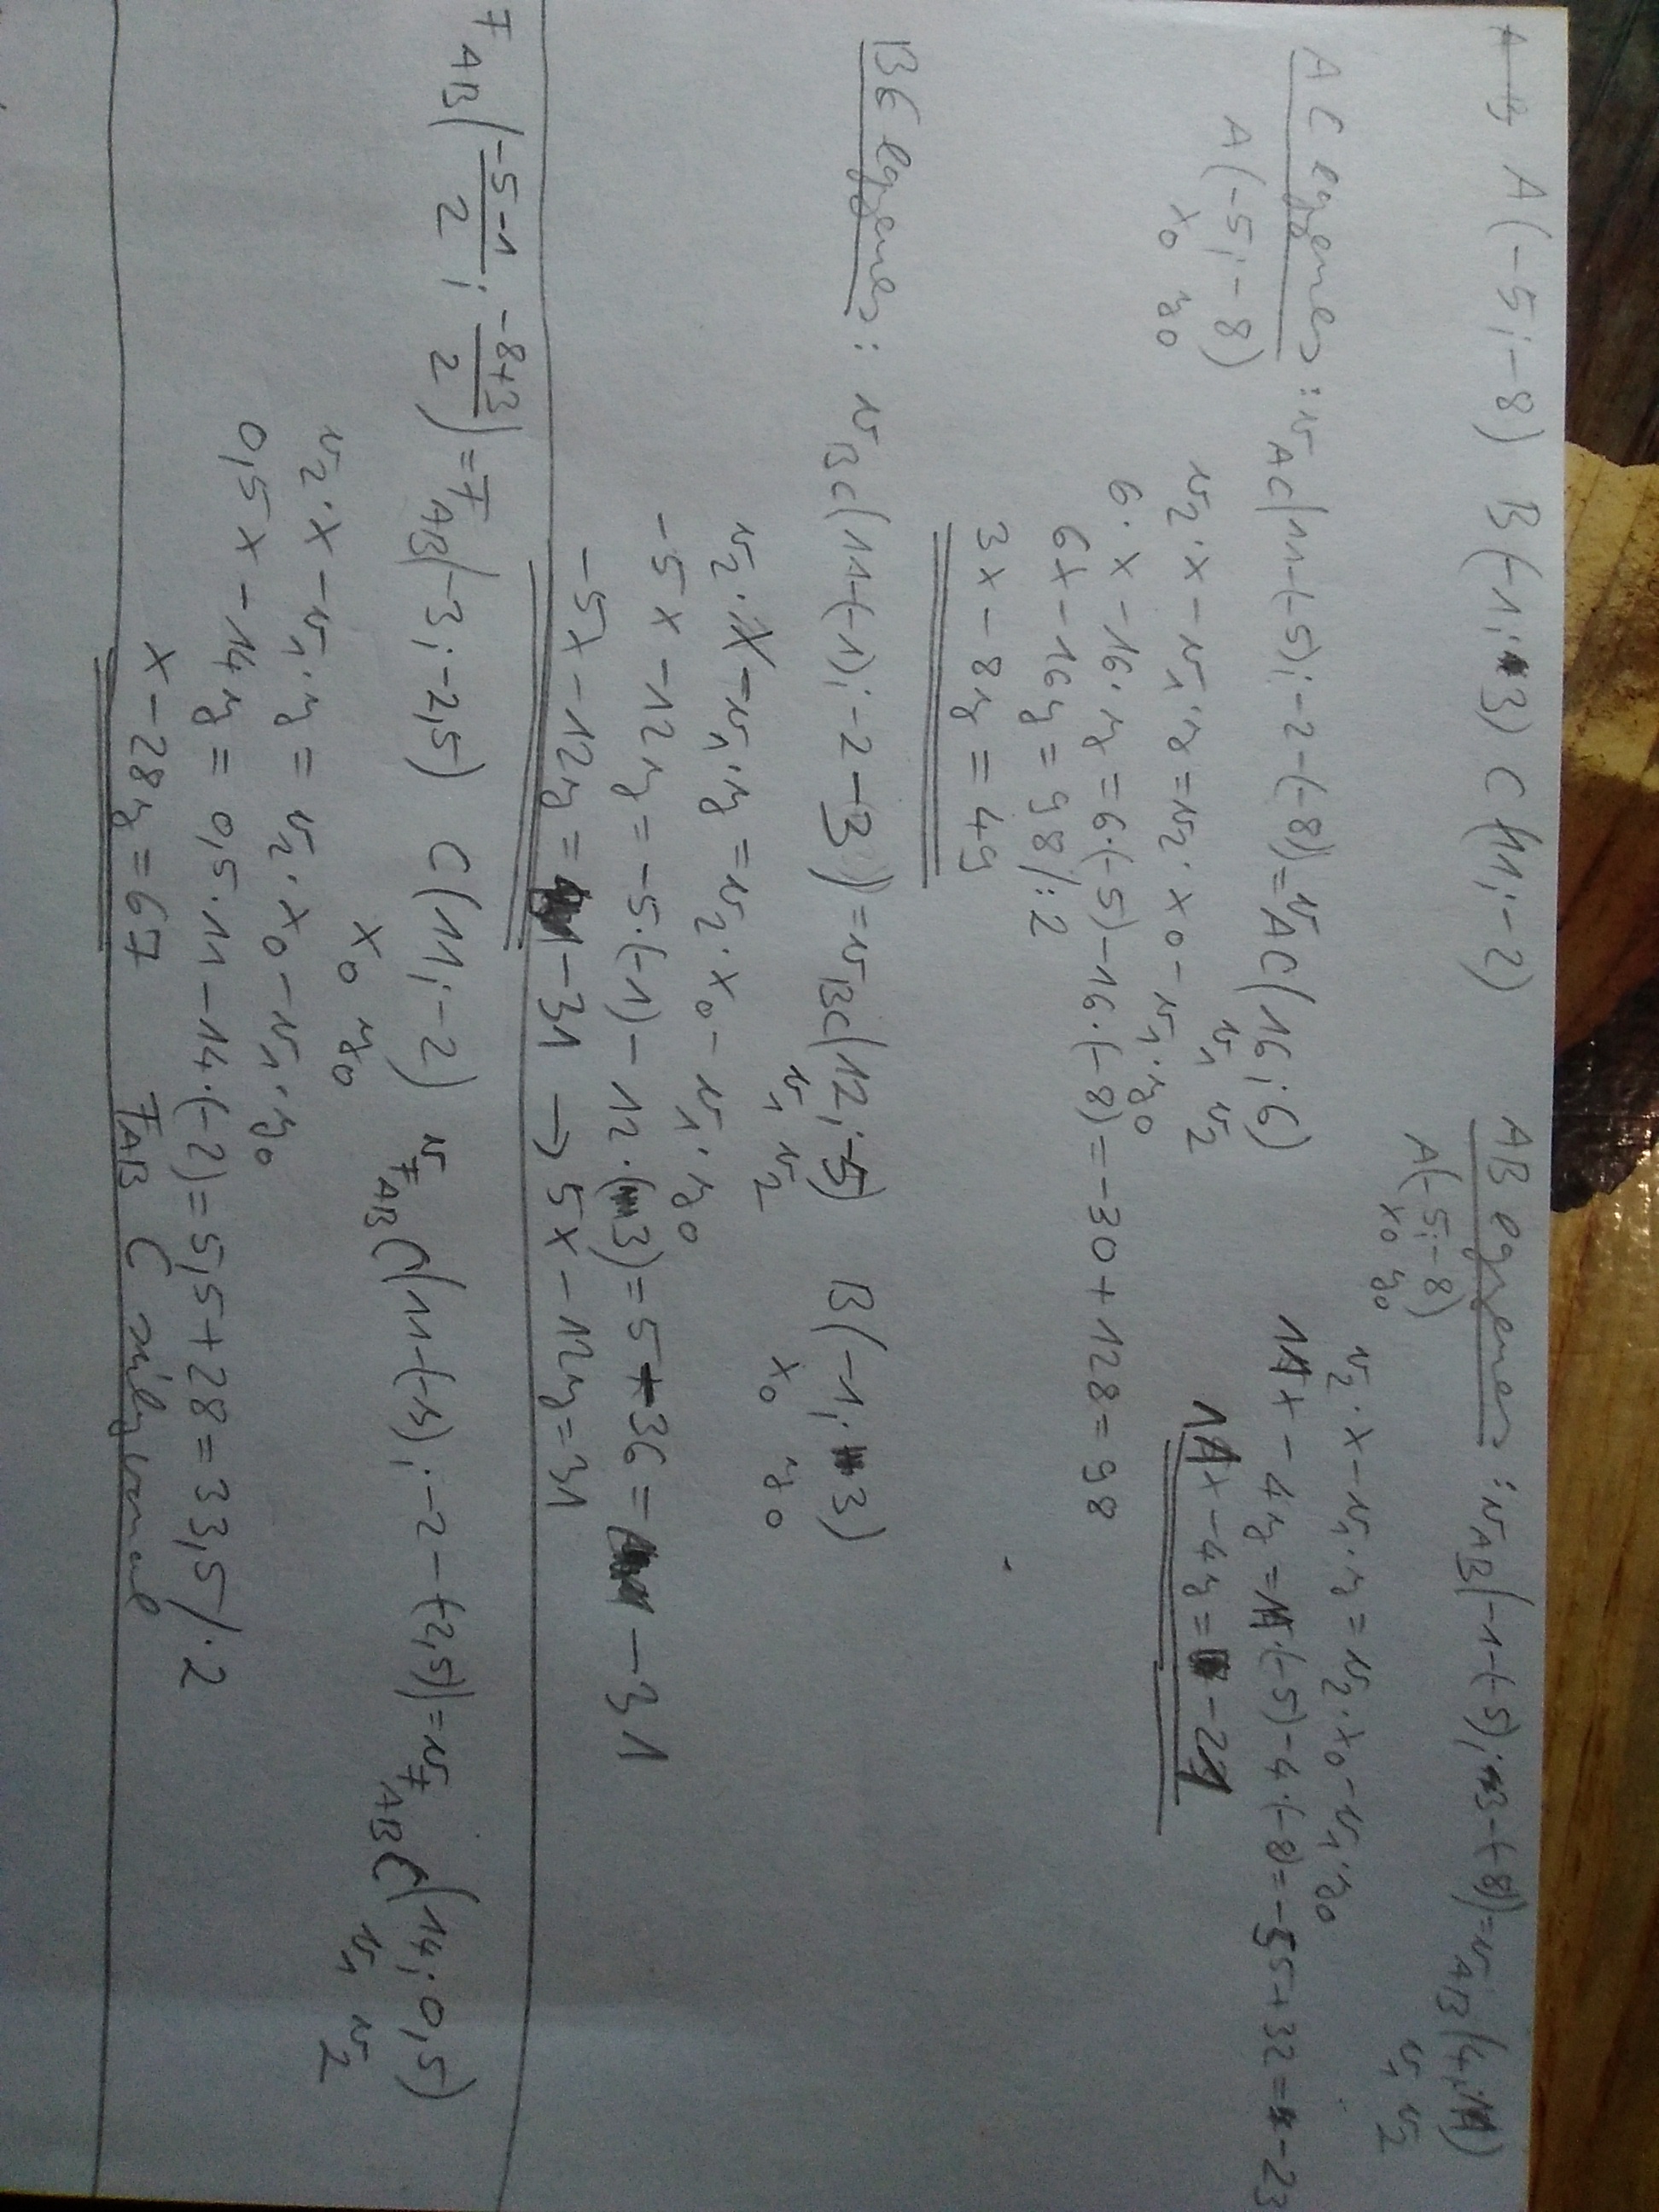 A(-5;-8) B(-1;3) C(11;-2)
AB egyenes: v_AB(-1-(-5);3-(-8))=v_AB(4;11)
v1 v2
A(-5;-8)
x0 y0
v2·x-v1·y=v2·x0-v1·y0
11x-4y=11·(-5)-4·(-8)=-55+32=-23
11x-4y=-23
AC egyenes: v_AC(11-(-5);-2-(-8))=v_AC(16;6)
v1 v2
A(-5;-8)
x0 y0
v2·x-v1·y=v2·x0-v1·y0
6·x-16·y=6·(-5)-16·(-8)=-30+128=98
6x-16y=98/:2
3x-8y=49
BC egyenes: v_BC(11-(-1);-2-3)=v_BC(12;-5) B(-1;3)
v1 v2 x0 y0
v2·x-v1·y=v2·x0-v1·y0
-5x-12y=-5·(-1)-12·(3)=5-36=-31
-5x-12y=-31 → 5x-12y=31
F_AB(-5-1/2;-8+3/2)=F_AB(-3;-2,5) C(11;-2) v_F_AB C(11-(-3);-2-(-2,5))=v_F_AB C(14;0,5)
x0 y0 v1 v2
v2·x-v1·y=v2·x0-v1·y0
0,5x-14y=0,5·11-14·(-2)=5,5+28=33,5/·2
x-28y=67 F_AB C súlyvonal